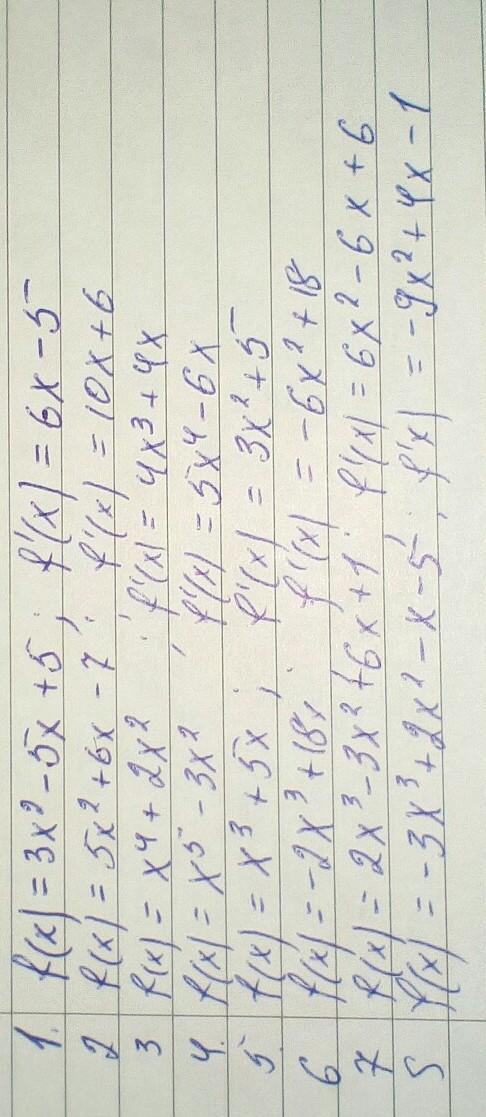 1. f(x) = 3x² - 5x + 5; f'(x) = 6x - 5
2 f(x) = 5x² + 6x - 7; f'(x) = 10x + 6
3 f(x) = x⁴ + 2x²; f'(x) = 4x³ + 4x
4. f(x) = x⁵ - 3x²; f'(x) = 5x⁴ - 6x
5. f(x) = x³ + 5x; f'(x) = 3x² + 5
6 f(x) = -2x³ + 18x; f'(x) = -6x² + 18
7 f(x) = 2x³ - 3x² + 6x + 1; f'(x) = 6x² - 6x + 6
8 f(x) = -3x³ + 2x² - x - 5; f'(x) = -9x² + 4x - 1